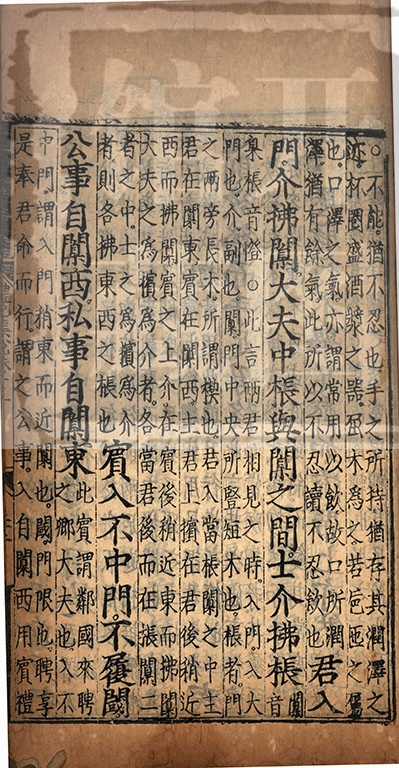 ○不能。猶不忍也。手之所持猶存其潤澤之
迹。杯圈盛酒漿之器。屈木為之。若巵匜之屬
也。口澤之氣亦謂常用以飲。故口所潤
澤猶有餘氣。此所以不忍讀不忍飲也
君入
門。介拂闑。大夫中棖與闑之間。士介拂棖
闑音
臬棖音橙○此言兩君相見之時。入門。入大
門也。介副也。闑門中央所豎短木也。棖者門
之兩旁長木。所謂楔也。君入當棖闑之中。主
君在闑東。賓在闑西。主君上擯在君後稍近
西而拂闑。賓之上介在賓後稍近東而拂闑
大夫之為擯為介者。各當君後而在棖闑二
者之中。士之為擯為介
者。則各拂東西之棖也
賓入不中門。不履閾。
公事自闑西。私事自闑東
此賓謂鄰國來聘
之卿大夫也。入不
中門。謂入門稍東而近闑也。閾門限也。聘享
是奉君命而行。謂之公事。入自闑西用賓禮